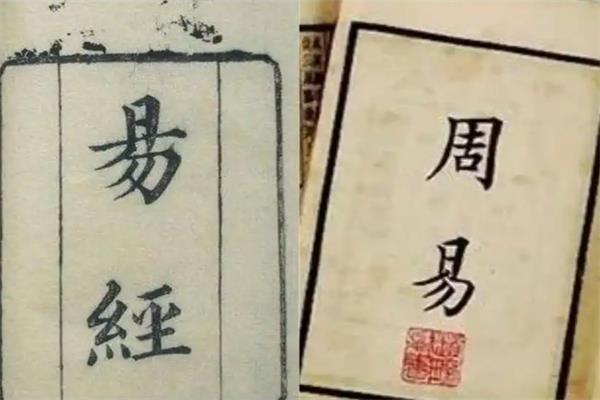 易經
周易